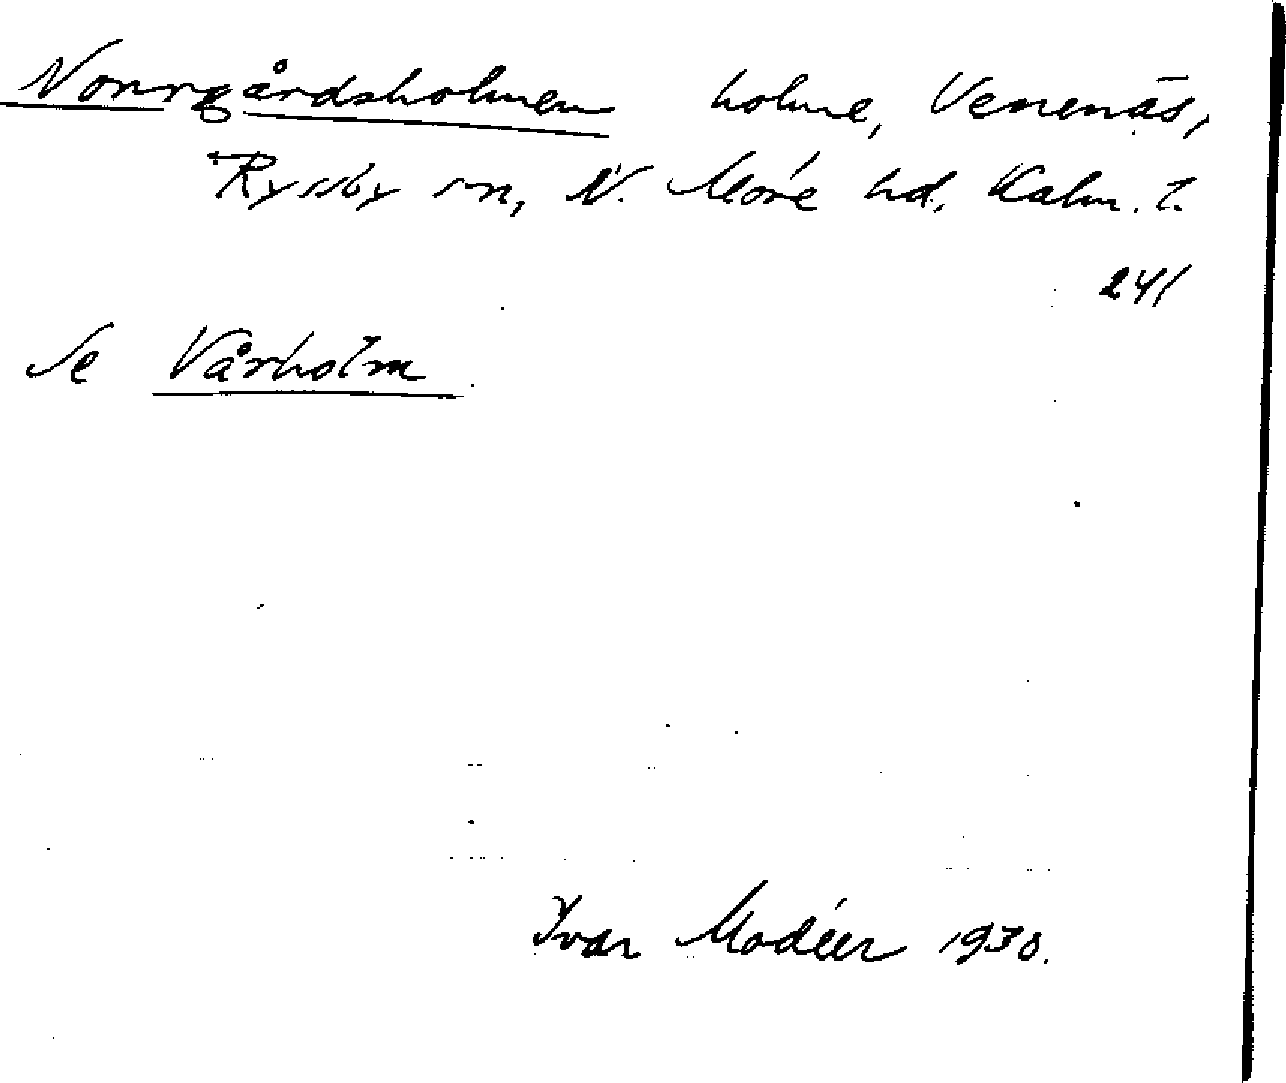 Norrgårdsholmen holme, Venenäs,
Ryssby sn, N. Möre hd, Kalm. l.
241
Se Vårholm
Ivar Modéer 1930.